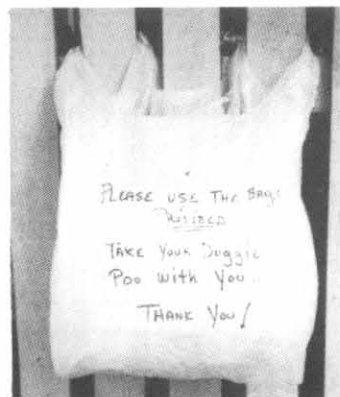 PLEASE USE THE BAGS
PROVIDED
TAKE YOUR Doggie
Poo With You.
THANK You!